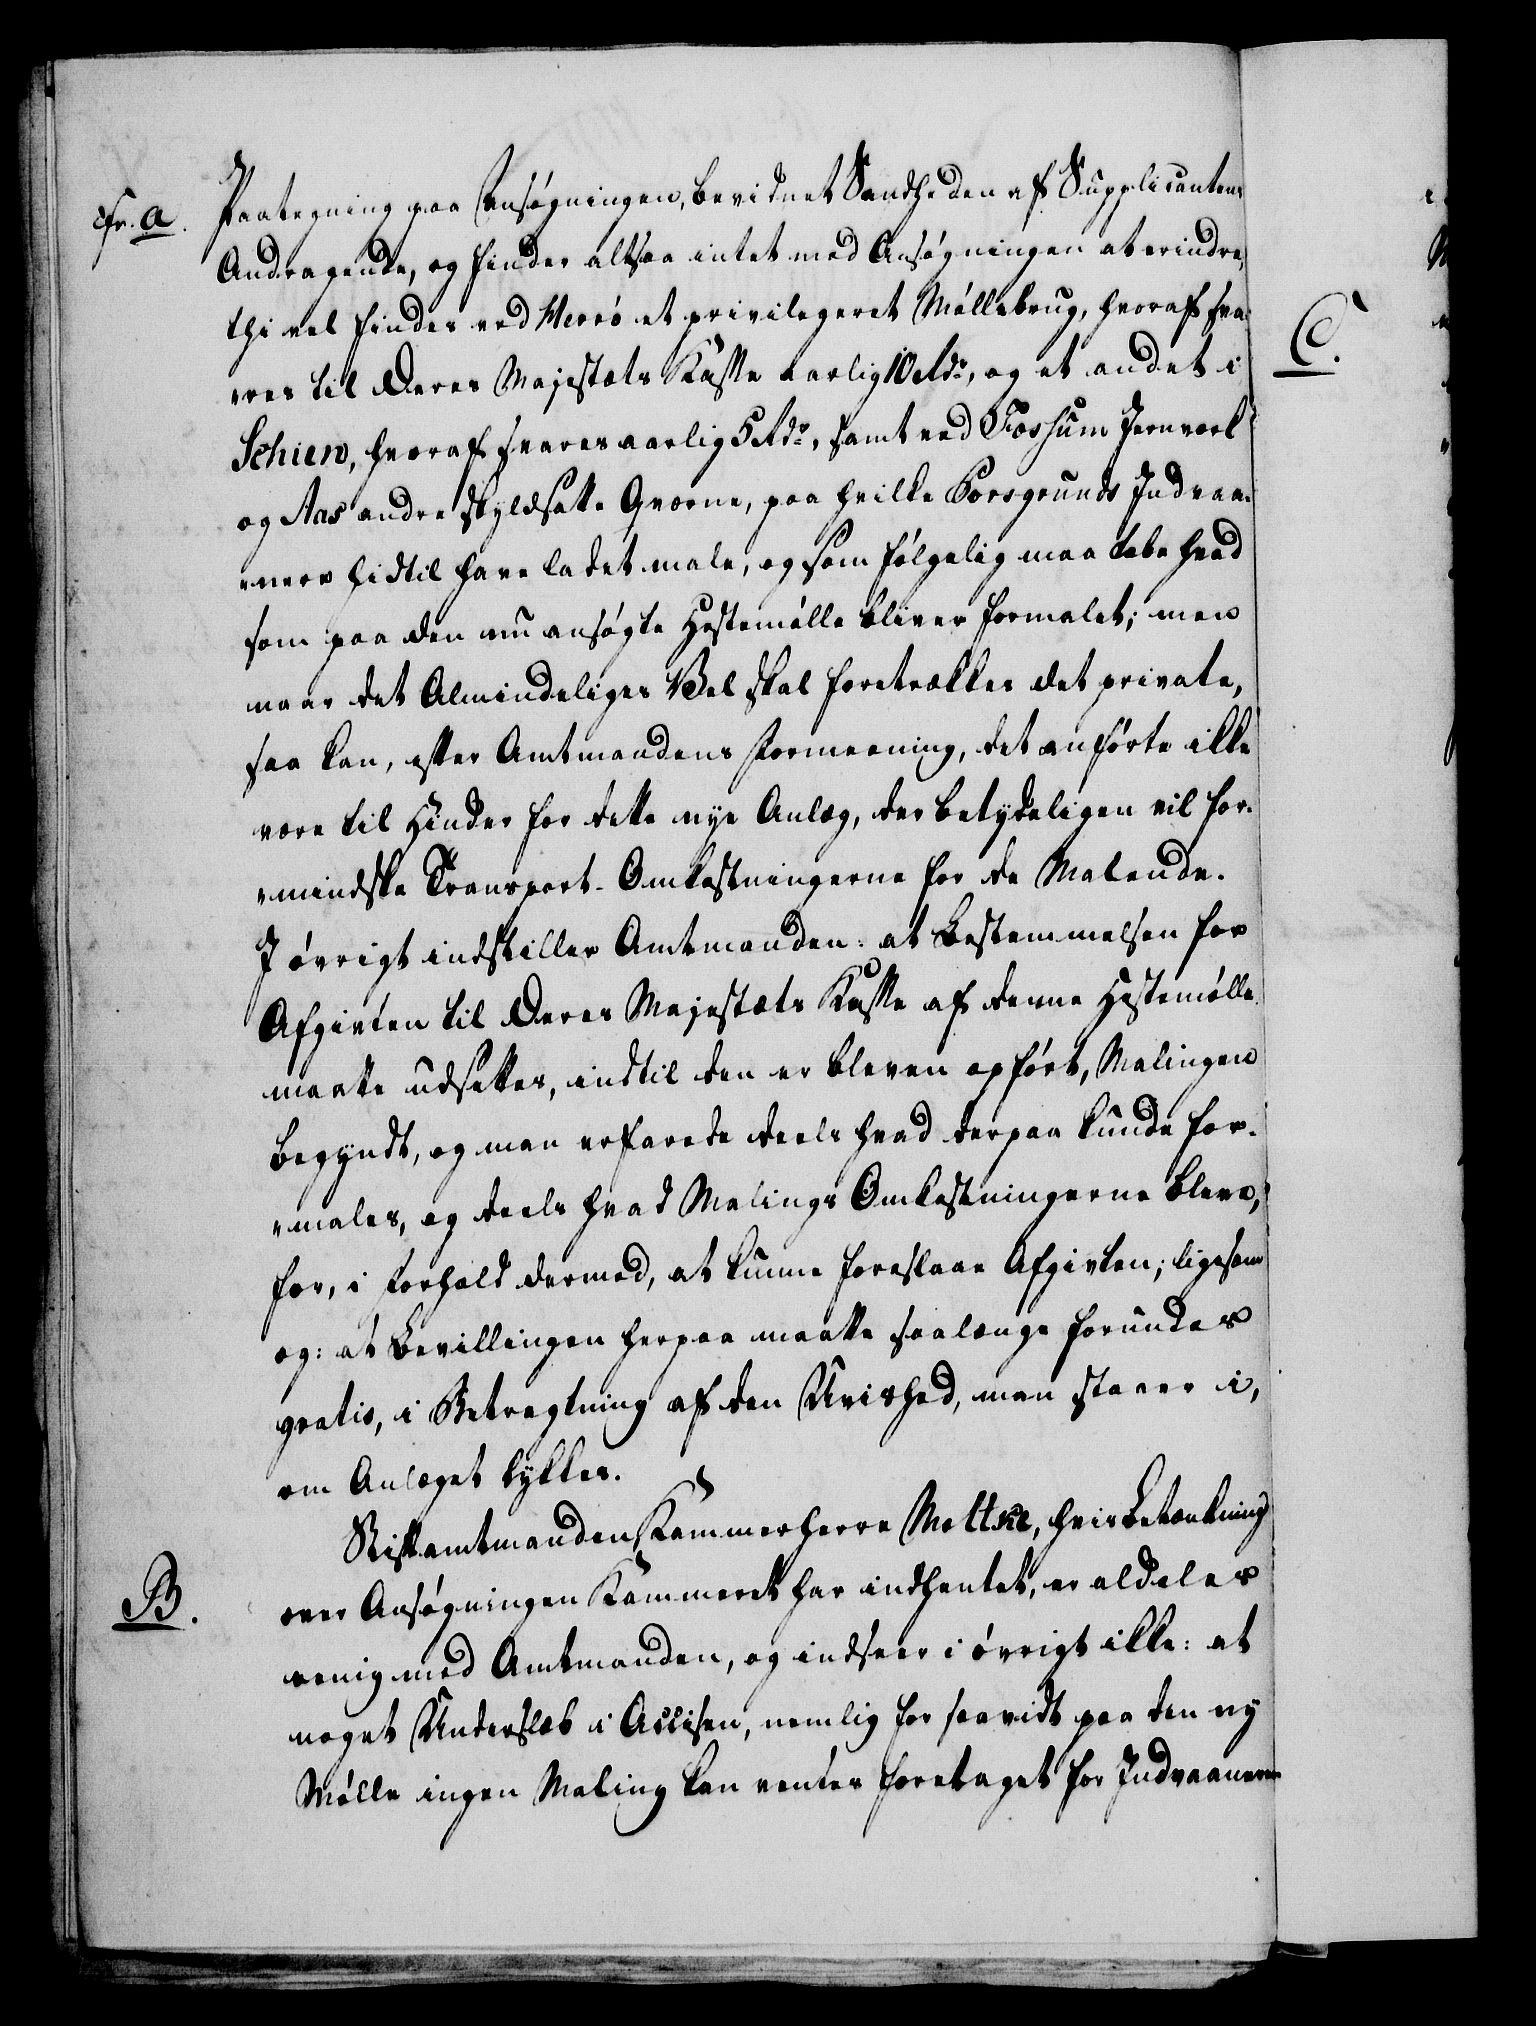 cfr. a.
Paategning paa Ansøgningen, bevidnet Sandheden af Supplicantens
Andragende, og finder altsaa intet mod Ansøgningen at erindre,
thi vel findes ved Herrø et privilegeret Møllebrug, hvoraf sva-
„res til Deres Majestæts Kasse aarlig 10 Rdr, og et andet i
Schien, hvoraf svares aarlig 5 Rdr, samt ved Fossum Jernverk
og Aas andre skyldsatte Qværne, paa hvilke Porsgrunds Indvaa-
„nere hidtil have ladet male, og som følgelig maa tabe hvad
som paa den nu ansøgte Hestemølle bliver formalet; men
naar det Almindeliges Vel skal foretrækkes det private,
saa kan, efter Amtmandens Formeening, det anførte ikke
være til Hinder for dette nye Anlæg, der betydeligen vil for-
„mindske Transport-Omkostningerne for de Malende.
I øvrigt indstiller Amtmanden: at Bestemmelsen for
Afgivten til Deres Majestæts Kasse af denne Hestemølle
maatte udsættes, indtil den er bleven opført, Malingen
begyndt, og man erfarede deels hvad derpaa kunde for-
„males, og deels hvad Malings Omkostningerne bleve,
for, i Forhold dermed, at kunne foreslaae Afgivten; ligesom
og: at Bevillingen herpaa maatte saalænge forundes
gratis, i Betragtning af den Uvished, man staaer i,
om Anlæget lykkes.
B.
Stiftamtmanden Kammerherre Moltke, hvis Betænkning
over Ansøgningen Kammeret har indhentet, er aldeles
eenig med Amtmanden, og indseer i øvrigt ikke: at
noget Underslæb i Accisen, nemlig for saavidt paa den ny
Mølle ingen Maling kan ventes foretaget for Indvaanerne
C.